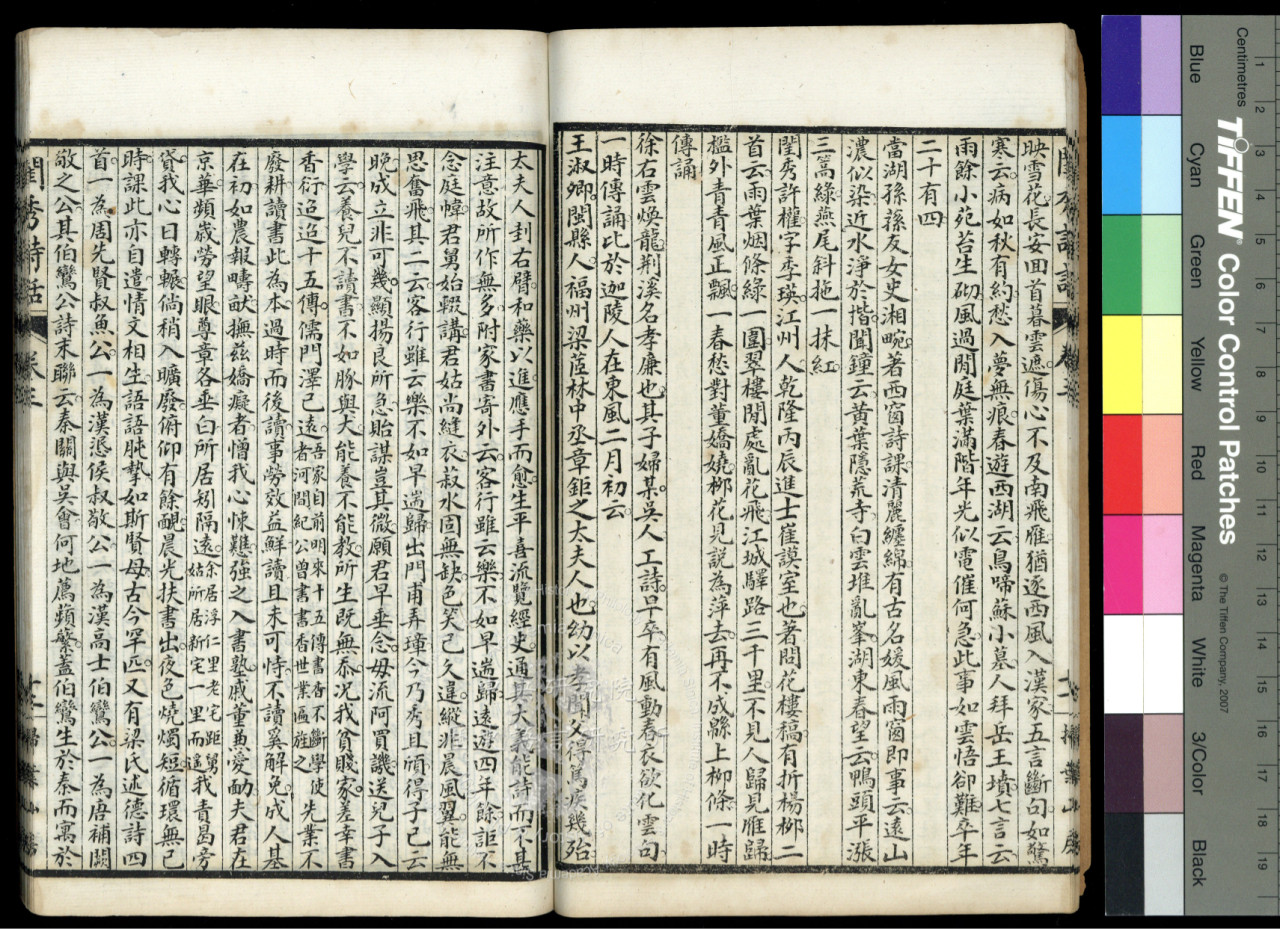 映雪花長安回首暮雲遮傷心不及南飛雁猶逐西風入漢家五言斷句如驚
寒云病如秋有約愁入夢無痕春遊西湖云鳥啼蘇小墓人拜岳王墳七言云
雨餘小苑苔生砌風過閒庭葉滿階年光似電催何急此事如雲悟卻難卒年
二十有四
當湖孫蓀友女史湘畹著西窗詩課清麗纏綿有古名媛風雨窗即事云遠山
濃似染近水淨於揩聞鐘云黃葉隱荒寺白雲堆亂峯湖東春望云鴨頭平漲
三篙綠燕尾斜拖一抹紅
閨秀許權字季瑛江州人乾隆丙辰進士崔謨室也著問花樓稿有折楊柳二
首云雨葉烟條綠一圍翠樓閒處亂花飛江城驛路三千里不見人歸見雁歸
檻外青青風正飄一春愁對董嬌嬈柳花見說為萍去再不成緜上柳條一時
傳誦
徐右雲煥龍荆溪名孝廉也其子婦某吳人工詩早卒有風動春衣欲化雲句
一時傳誦比於迦陵人在東風二月初云
王淑卿閩縣人福州梁茝林中丞章鉅之太夫人也幼以孝聞父得篤疾幾殆
太夫人刲右臂和藥以進應手而愈生平喜流覽經史通其大義能詩而不甚
注意故所作無多附家書寄外云客行雖云樂不如早遄歸遠遊四年餘詎不
念庭幃君舅始輟講君姑尚縫衣菽水固無缺色笑已久違縱非晨風翼能無
思奮飛其二云客行雖云樂不如早遄歸出門甫弄璋今乃秀且頎得子已云
晚成立非可幾顯揚良所急貽謀豈其微願君早垂念毋流阿買譏送兒子入
學云養兒不讀書不如豚與犬能養不能教所生既無忝況我貧賤家差幸書
香衍迢迢十五傳儒門澤已遠吾家自前明來十五傳書香不斷學使者河間紀公曾書書香世業匾旌之先業不
廢耕讀書此為本過時而後讀事勞效益鮮讀且未可恃不讀奚解免成人基
在初如農報疇畝撫茲嬌癡者憎我心悚難強之入書塾戚董兼愛勔夫君在
京華頻歲勞望眼尊章各垂白所居矧隔遠余居浮仁里老宅距舅姑所居新宅一里而遙我責曷旁
貸我心日轉輾倘稍入曠廢俯仰有餘靦晨光扶書出夜色燒燭短循環無已
時課此亦自遣情文相生語語肫摯如斯賢母古今罕匹又有梁氏述德詩四
首一為周先賢叔魚公一為漢愍侯叔敬公一為漢高士伯鸞公一為唐補闕
敬之公其伯鸞公詩末聯云秦關與吳會何地薦蘋蘩蓋伯鸞生於秦而寓於
閨秀詩話
卷三
Centimetres
TIFFEN® Color Control Patches
© The Tiffen Company, 2007
Blue
Cyan
Green
Yellow
Red
Magenta
White
3/Color
Black
1
2
3
4
5
6
7
8
9
10
11
12
13
14
15
16
17
18
19